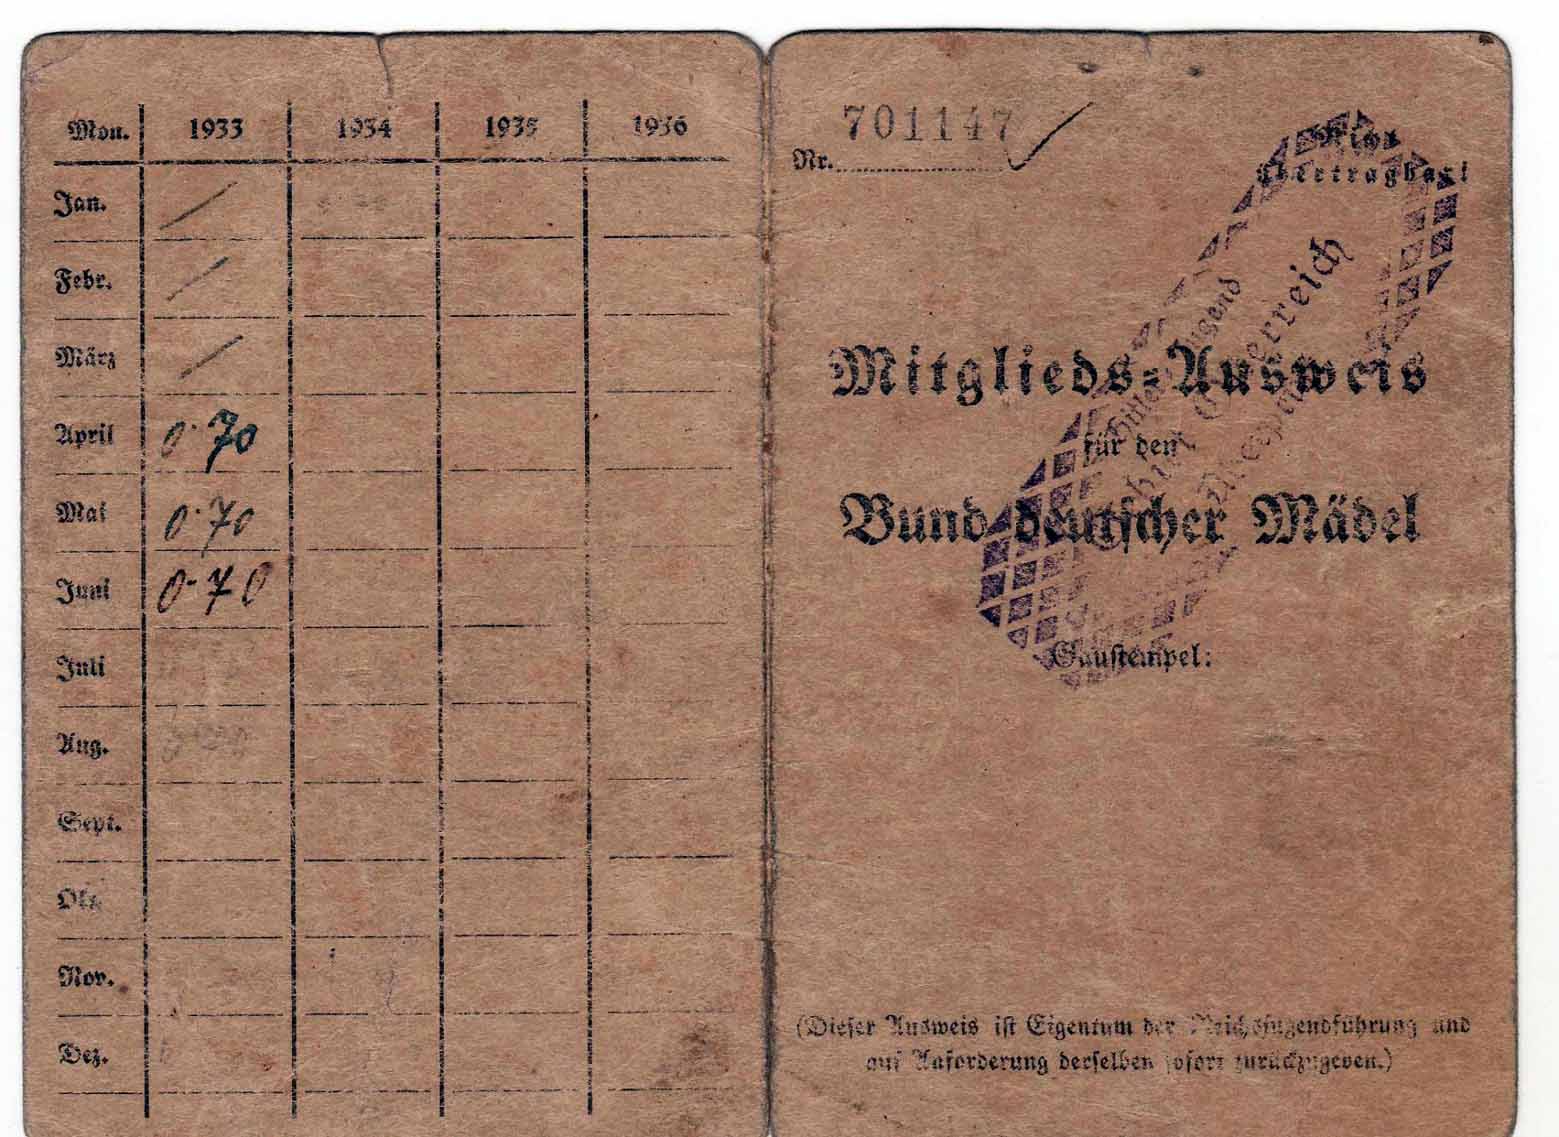 Mon. 1933 1934 1935 1936
Jan.
Febr.
März
April 0·70
Mai 0·70
Juni 0-70
Juli
Aug.
Sept.
Okt.
Nov.
Dez.
701147
Nr.
Nicht
übertragbar!
Hitlerjugend
Österreich
Mitglieds-Ausweis
für den
Bund deutscher Mädel
Gaustempel:
(Dieser Ausweis ist Eigentum der Reichsjugendführung und
auf Anforderung derselben sofort zurückzugeben.)